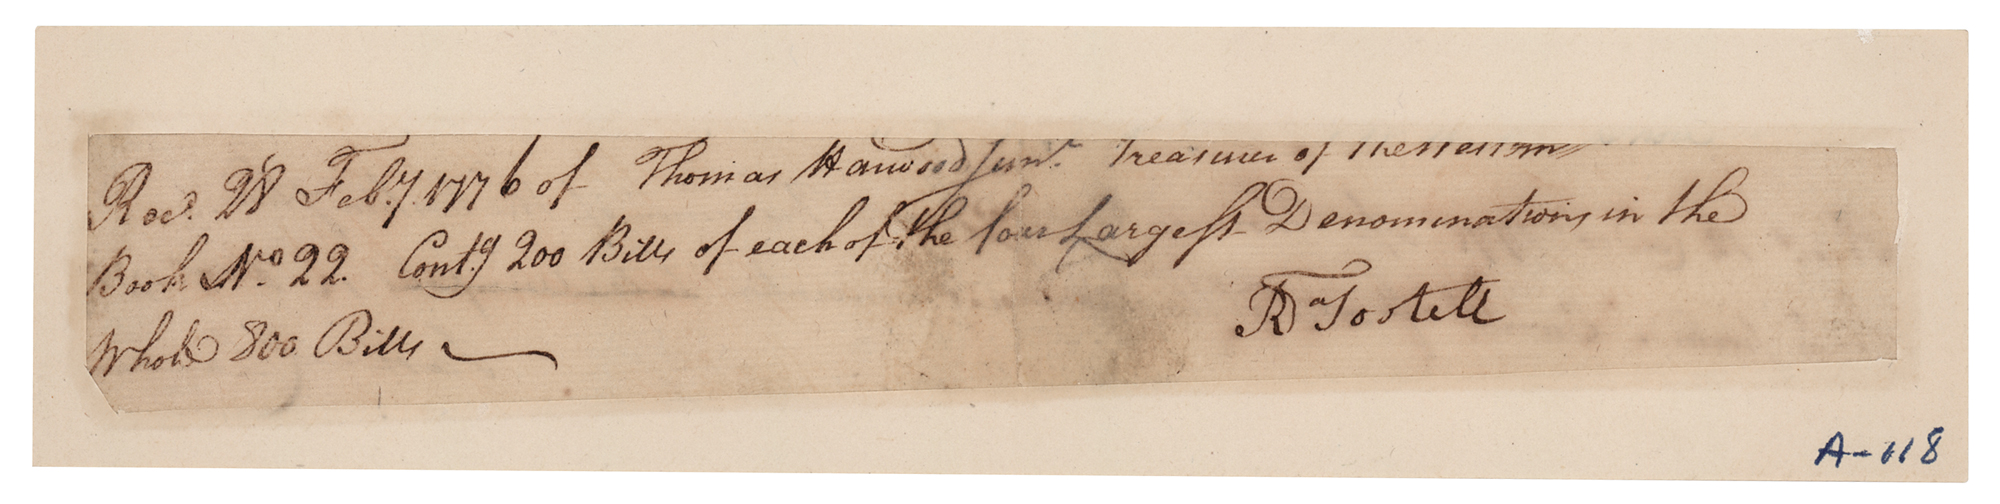 Recd. 28 Feby. 1776 of Thomas Harwood Junr. Treasurer of the Western
Book No. 22. Contg 200 Bills of each of the four Largest Denominations in the
Whole 800 Bills
Rd Tootell
A-118